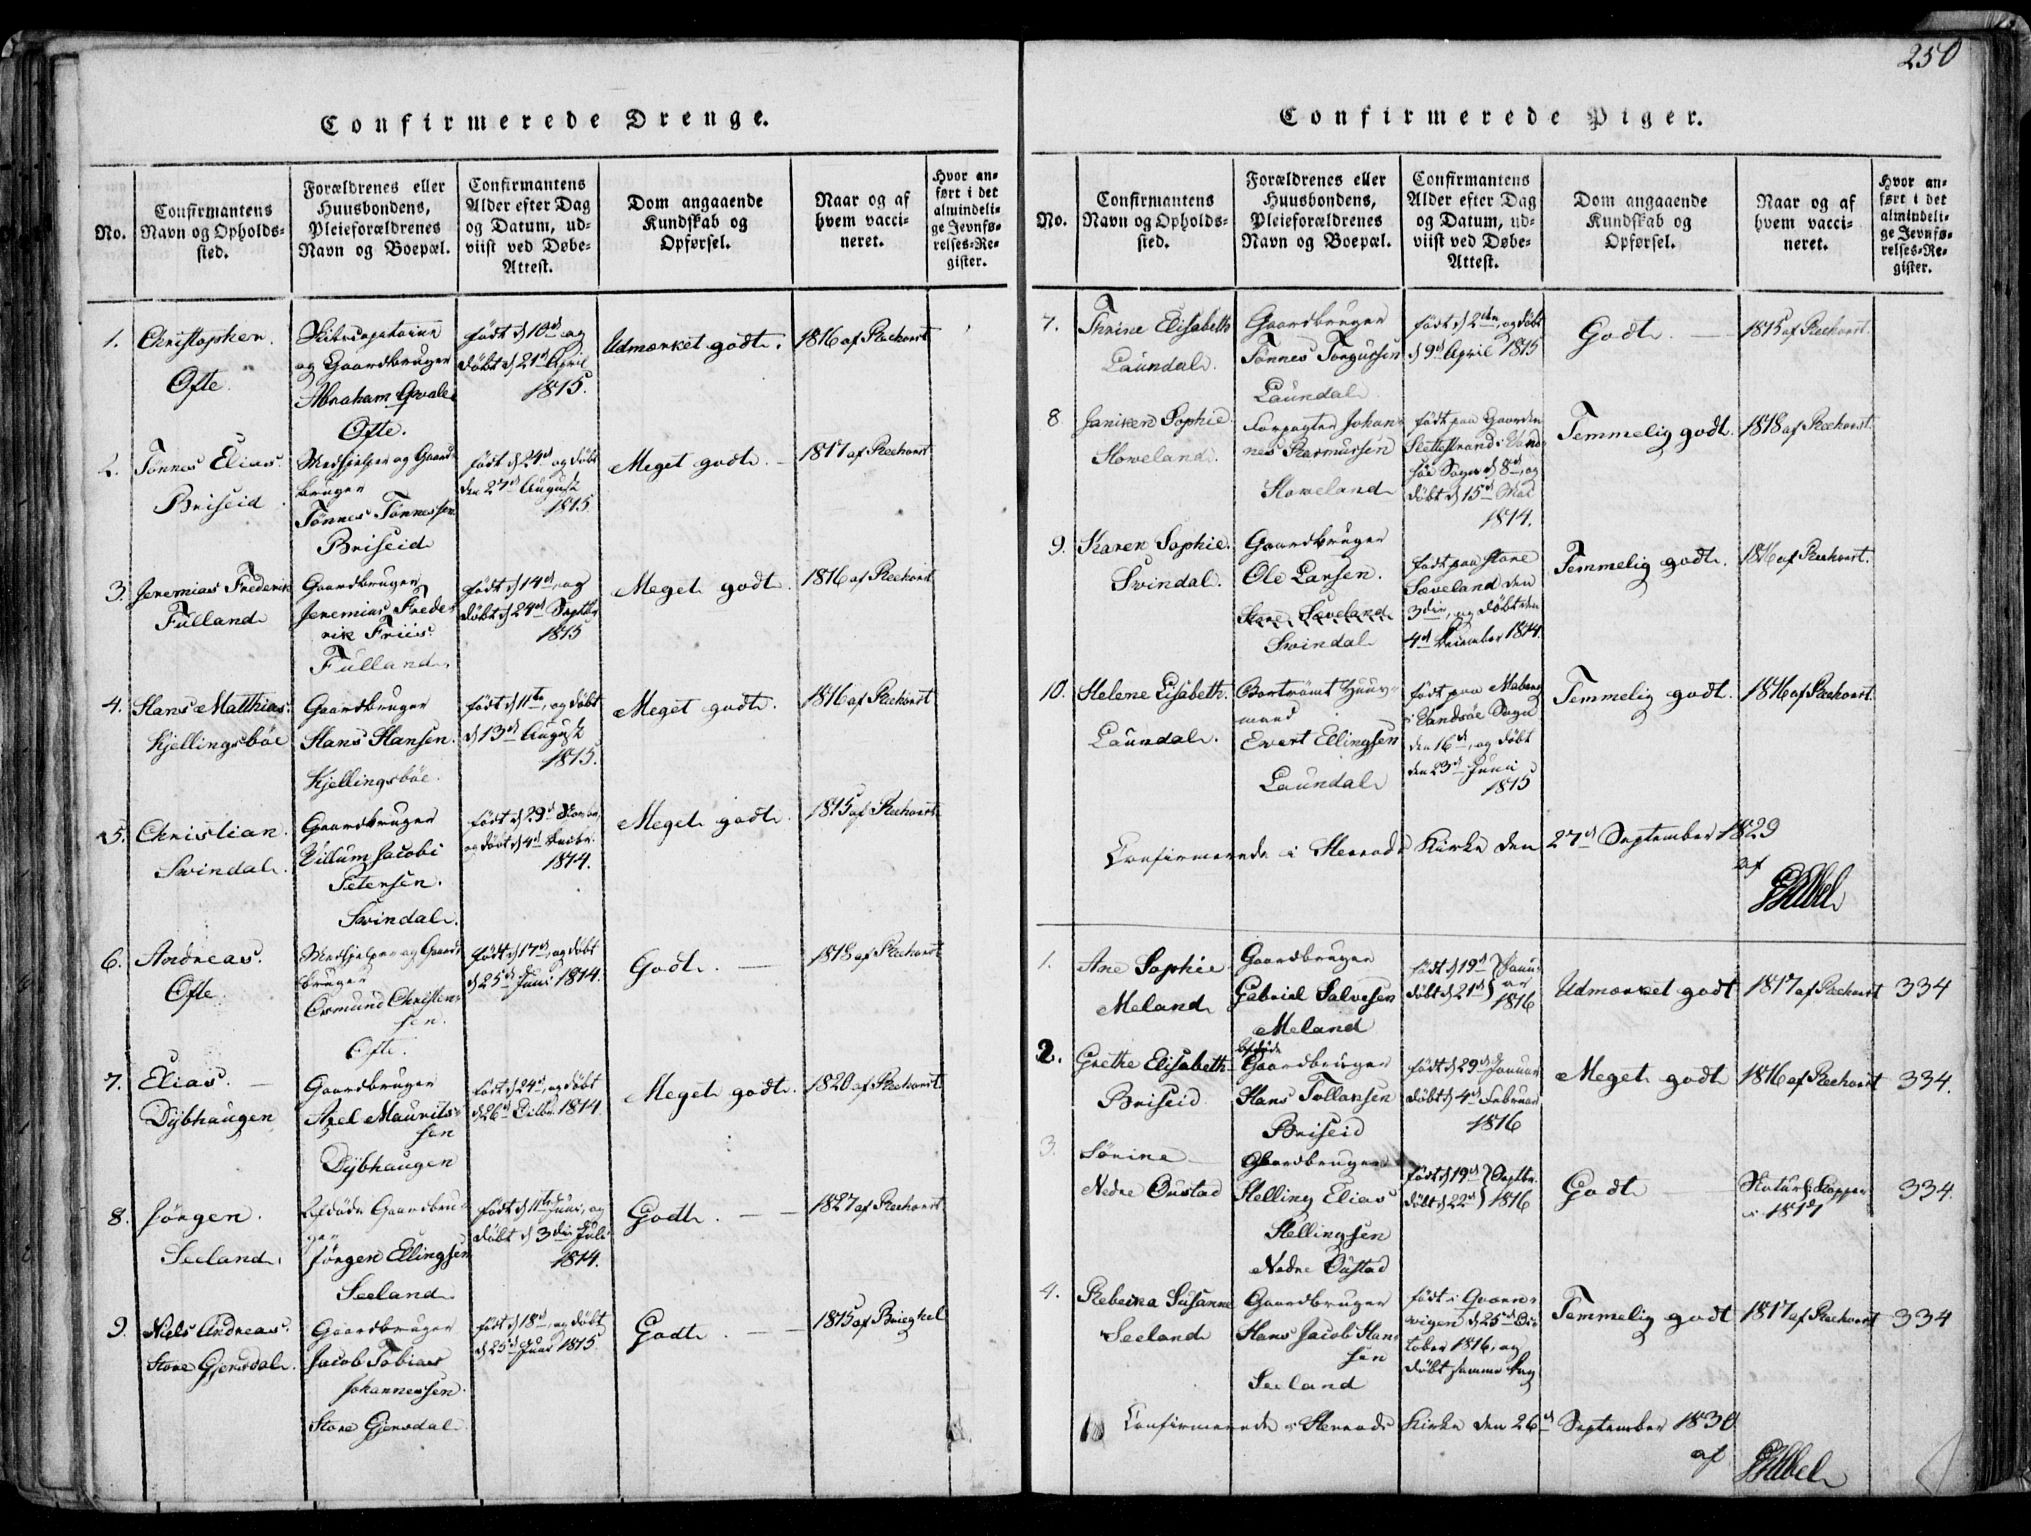 250
Confirmerede Drenge.
No.
Confirmantens
Navn og Opholds-
sted.
Forældrenes eller
Huusbondens,
Pleieforældrenes
Navn og Boepæl.
Confirmantens
Alder efter Dag
og Datum, ud-
viist ved Døbe-
Attest.
Dom angaaende
Kundskab og
Opførsel.
Naar og af
hvem vacci-
neret.
Hvor an-
ført i det
almindeli-
ge Jevnfø-
relses-Re-
gister.
1.
Christopher.
Ofte.
og Gaardbruger
Abraham
Ofte.
født d 10de og
døbt d 21de April
1815.
Udmærket godt.
1816 af
2.
Tønnes Elias.
Briseid
Medhjelper og Gaard
bruger
Tønnes Tønnessen
Briseid
født d 24de og døbt
den 27de August
1815.
Meget godt.
1817 af
3.
Jeremias Frederik
Fulland
Gaardbruger
Jeremias Frede-
rik Friis.
Fulland.
født d 14de, og
døbt d 24de Septbr
1815
Meget godt.
1816 af
4.
Hans Matthias.
Kjellingsböe
Gaardbruger
Hans Hansen.
Kjellingsböe.
født d 11te, og døbt
d 13de August
1815.
Meget godt.
1816 af
5.
Christian.
Svindal.
Gaardbruger
Villum Jacobi
Petersen.
Svindal.
født d 29de
og døbt d 4de Decbr.
1814.
Meget godt.
1815 af
6.
Andreas.
Ofte.
Medhjelper og Gaard
bruger
Osmund Christen-
sen.
Ofte.
født d 17de, og døbt
d 25de Juni 1814.
Godt. —
1818 af
7.
Elias. —
Dÿbhaugen
Gaardbruger
Axel Maurits-
sen
Dÿbhaugen
født d 24de, og døbt
d 26de 1814.
Meget godt.
1820 af
8.
Jörgen.
Seeland.
Afdöde Gaardbru-
ger
Jörgen Ellingsen
Seeland.
født d 11te Juni, og
døbt d 3die Juli
1814.
Godt. —
1827 af
9.
Niels Andreas.
Store Gjersdal.
Gaardbruger
Jacob Tobias
Johannessen.
Store Gjersdal.
født d 18de, og døbt
d 25de Juni 1815.
Godt. —
1815 af Brieghel
Confirmerede Piger.
No.
Confirmantens
Navn og Opholds-
sted.
Forældrenes eller
Huusbondens,
Pleieforældrenes
Navn og Boepæl.
Confirmantens
Alder efter Dag
og Datum, ud-
viist ved Døbe-
Attest.
Dom angaaende
Kundskab og
Opførsel.
Naar og af
hvem vacci-
neret.
Hvor an-
ført i det
almindeli-
ge Jevnfø-
relses-Re-
gister.
7.
Thrine Elisabeth
Laundal.
Gaardbruger
Tønnes Torgussen
Laundal.
født d 2den, og døbt
d 9de April 1815
Godt. —
1815 af
8
Janiken Sophie.
Howeland.
Forpagter Johan-
nes Rasmussen
Howeland
født paa Gaarden
i Vand-
söe Sogn d 8de, og
døbt d 15de Mai
1814.
Temmelig godt.
1818 af
9.
Karen Sophie.
Svindal.
Gaardbruger
Ole Larsen.
Store Sæveland
Svindal
født paa Store
Sæveland den
3die, og døbt den
4de December 1814.
Temmelig godt.
1816 af
10.
Helene Lisabeth.
Laundal.
Bortrömt Huus-
mand
Evert Ellingsen
Laundal
født paa
i Vandsöe Sogn
den 16de, og døbt
den 23de Juni
1815
Temmelig godt.
1816 af
Confirmerede i Herreds Kirke den 27de September 1829
af
1.
Ane Sophie
Meland
Gaardbruger
Gabriel Salvesen
Meland
født d 19de } Janu-
døbt d 21de } ar
1816
Udmærket godt
1817 af
334
2.
Grethe Elisabeth
Briseid
afdøde
Gaardbruger
Hans Tollaksen
Briseid
født d 29de Januar
døbt d 4de Februar
1816
Meget godt
1816 af
334.
3.
Sörine —
Nedre Öustad
Gaardbruger
Helling Elias
Hellingsen
Nedre Öustad
født d 19de } Septbr.
døbt d 22de } 1816
Godt —
Naturl. Kopper
i 1817
334.
4.
Rebecka Susanne
Seeland
Gaardbruger
Hans Jacob Han-
sen
Seeland
født i
vigen, d 25de Oc-
tober 1816, og
døbt samme Dag
Temmelig godt
1817 af
334
Confirmerede i Herreds Kirke den 26de September 1830
af